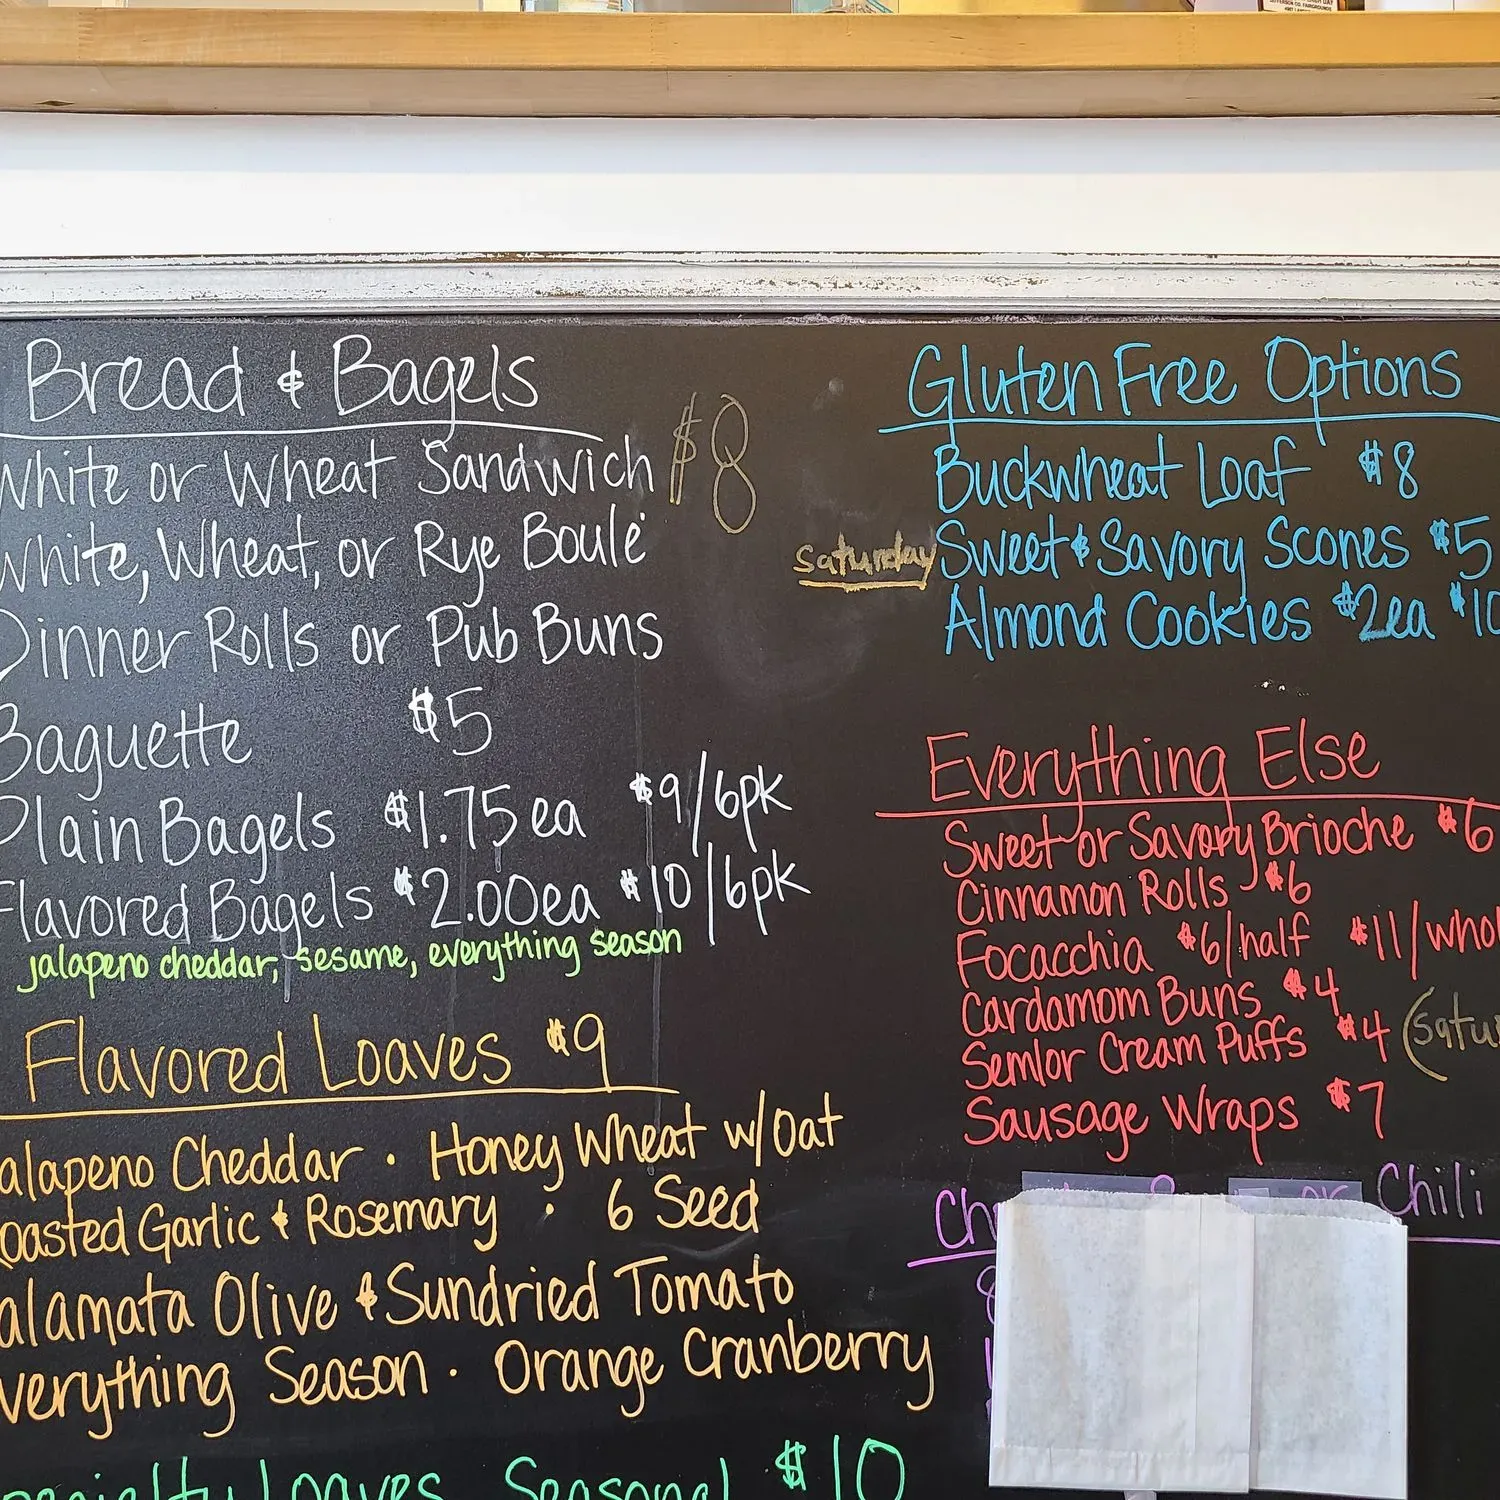 JEFFERSON CO. FAIRGROUNDS
Bread & Bagels
White or Wheat Sandwich $8
White, Wheat, or Rye Boule
Dinner Rolls or Pub Buns
Baguette $5
Plain Bagels $1.75 ea $9/6pk
Flavored Bagels $2.00 ea $10/6pk
jalapeno cheddar, sesame, everything season
Flavored Loaves $9
alapeno Cheddar · Honey Wheat w/Oat
oasted Garlic & Rosemary · 6 Seed
alamata Olive & Sundried Tomato
verything Season · Orange Cranberry
pecialty Loaves Seasonal $10
Gluten Free Options
Buckwheat Loaf $8
saturday Sweet & Savory Scones $5
Almond Cookies $2ea $10
Everything Else
Sweet or Savory Brioche $6
Cinnamon Rolls $6
Focacchia $6/half $11/whol
Cardamom Buns $4
Semlor Cream Puffs $4 (satu
Sausage Wraps $7
or Chili